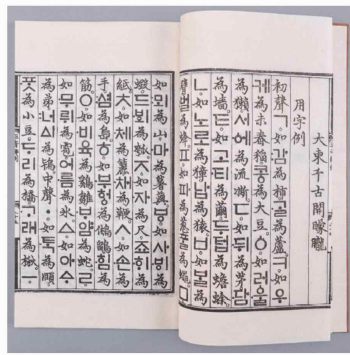 大東千古開矇矓
用字例
初聲ㄱ。如감為柿。ᄀᆞᆯ為蘆。ㅋ。如우
케為未舂稻。콩為大豆。ㆁ。如러울
為獺。서에為流凘。ㄷ。如뒤為茅。담
為墻。ㅌ。如고티為繭。두텁為蟾蜍。
ㄴ。如노로為獐。납為猿。ㅂ。如ᄇᆞᆯ為
臂。벌為蜂。ㅍ。如파為葱。ᄑᆞᆯ為蠅。ㅁ。
如뫼為山。마為薯藇。ㅸ。如사ᄫᅵ為
蝦。드ᄫᅴ為瓠。ㅈ。如자為尺。죠ᄒᆡ為
紙。ㅊ。如체為籭。채為鞭。ㅅ。如손為
手。셤為島。ㅎ。如부헝為鵂鶹。힘為
筋。ㅇ。如비육為鷄雛。ᄇᆞ얌為蛇。ㄹ。
如무뤼為雹。어름為氷。ㅿ。如아ᅀᆞ
為弟。너ᅀᅵ為鴇。中聲ㆍ。如ᄐᆞᆨ為頤。
ᄑᆞᆺ為小豆。ᄃᆞ리為橋。ᄀᆞ래為楸。